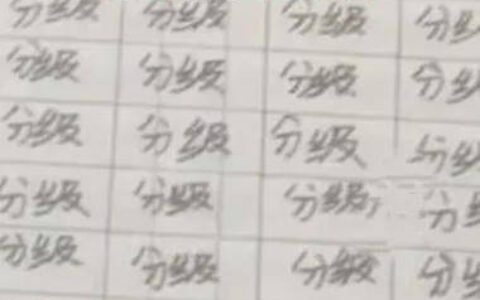 分级 分级 分级 分级
分级 分级 分级 分级
分级 分级 分级 分级
分级 分级 分级 分级
分级 分级 分级 分级